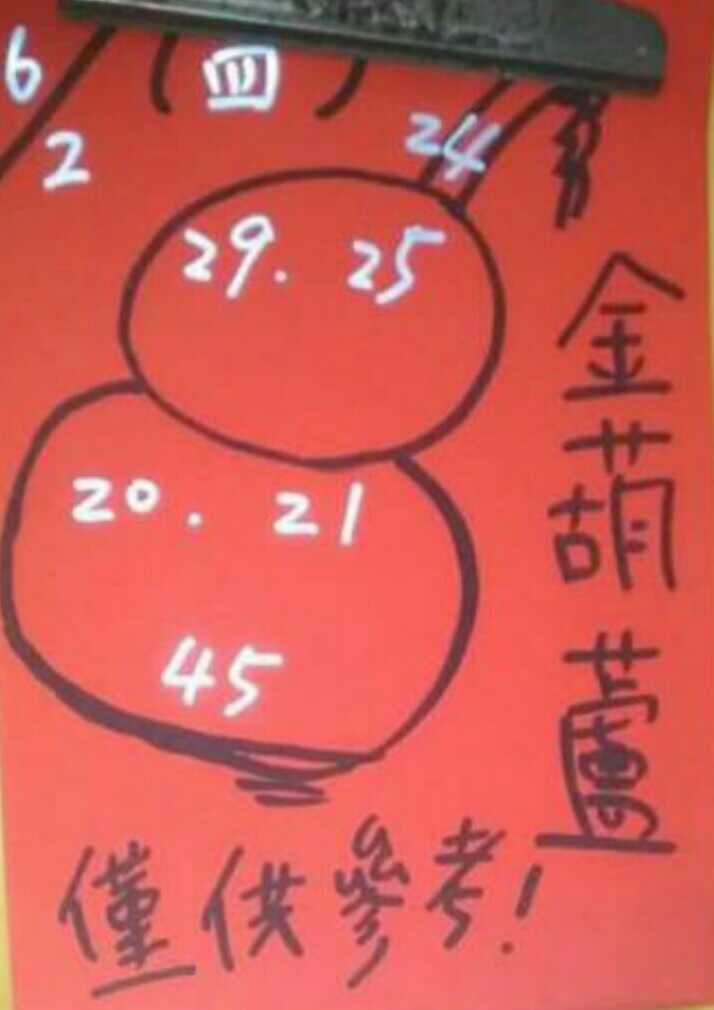 6/2(四)
24
29. 25
20. 21
45
金葫蘆
僅供參考!